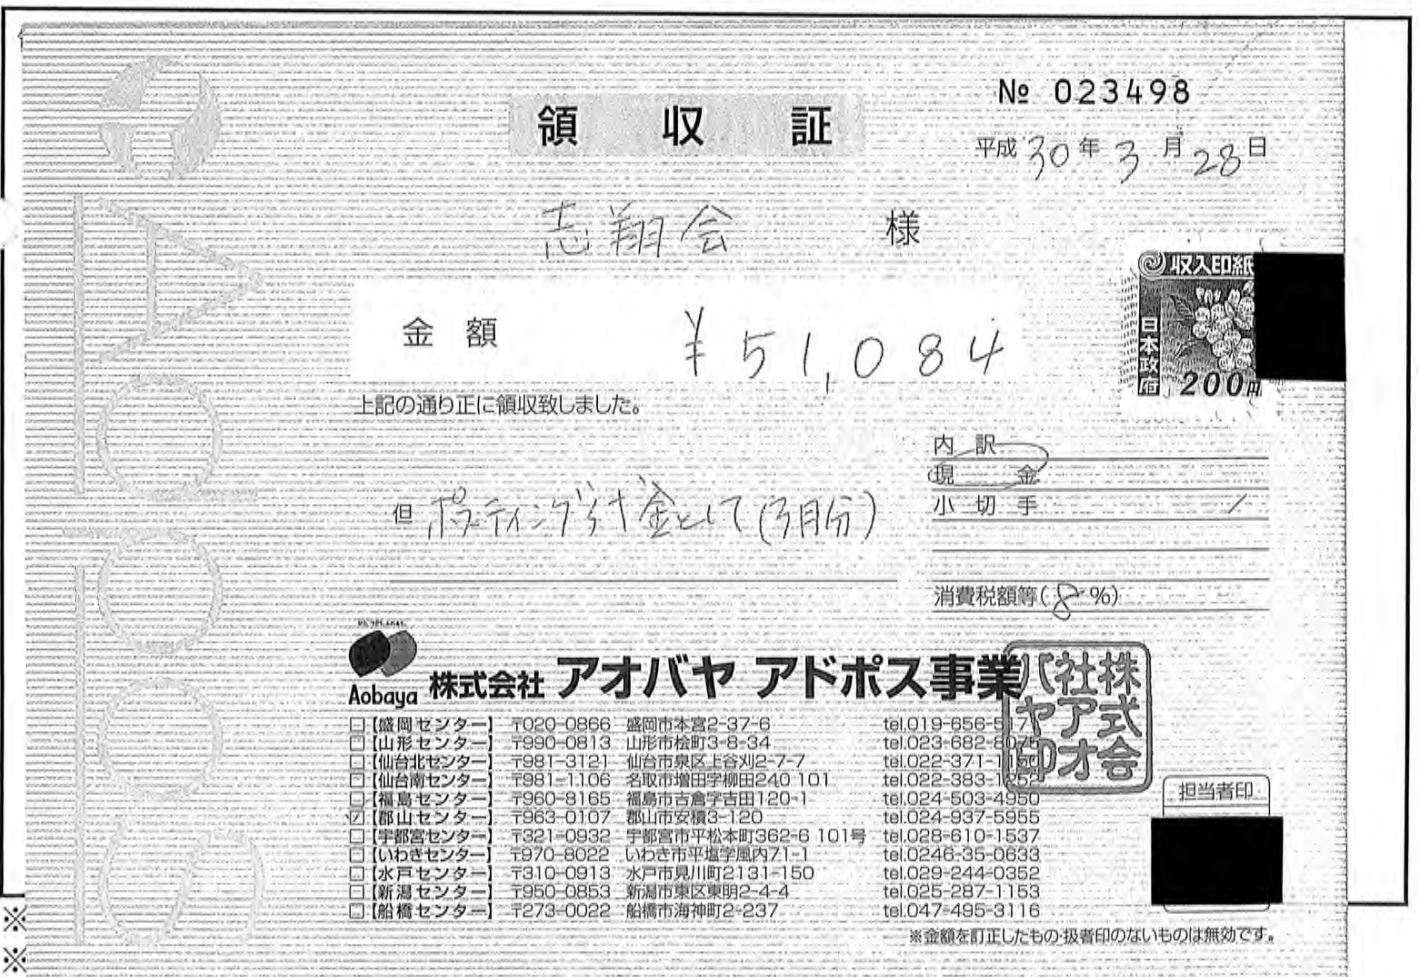 № 023498
領収証
平成30年3月28日
志翔会 様
収入印紙
日本政府
200円
金額 ¥51,084
上記の通り正に領収致しました。
内訳
現金
小切手
但 ポスティング代金として(3月分)
消費税額等(8%)
Aobaya 株式会社 アオバヤ アドポス事業
株式会社アオバヤ印
□【盛岡センター】 〒020-0866 盛岡市本宮2-37-6 tel.019-656-517
□【山形センター】 〒990-0813 山形市桧町3-8-34 tel.023-682-8
□【仙台北センター】 〒981-3121 仙台市泉区上谷刈2-7-7 tel.022-371-1
□【仙台南センター】 〒981-1106 名取市増田字柳田240 101 tel.022-383-1
□【福島センター】 〒960-8165 福島市吉倉字吉田120-1 tel.024-503-4950
☑【郡山センター】 〒963-0107 郡山市安積3-120 tel.024-937-5955
□【宇都宮センター】 〒321-0932 宇都宮市平松本町362-6 101号 tel.028-610-1537
□【いわきセンター】 〒970-8022 いわき市平塩字風内71-1 tel.0246-35-0633
□【水戸センター】 〒310-0913 水戸市見川町2131-150 tel.029-244-0352
□【新潟センター】 〒950-0853 新潟市東区東明2-4-4 tel.025-287-1153
□【船橋センター】 〒273-0022 船橋市海神町2-237 tel.047-495-3116
担当者印
※金額を訂正したもの・扱者印のないものは無効です。
※
※